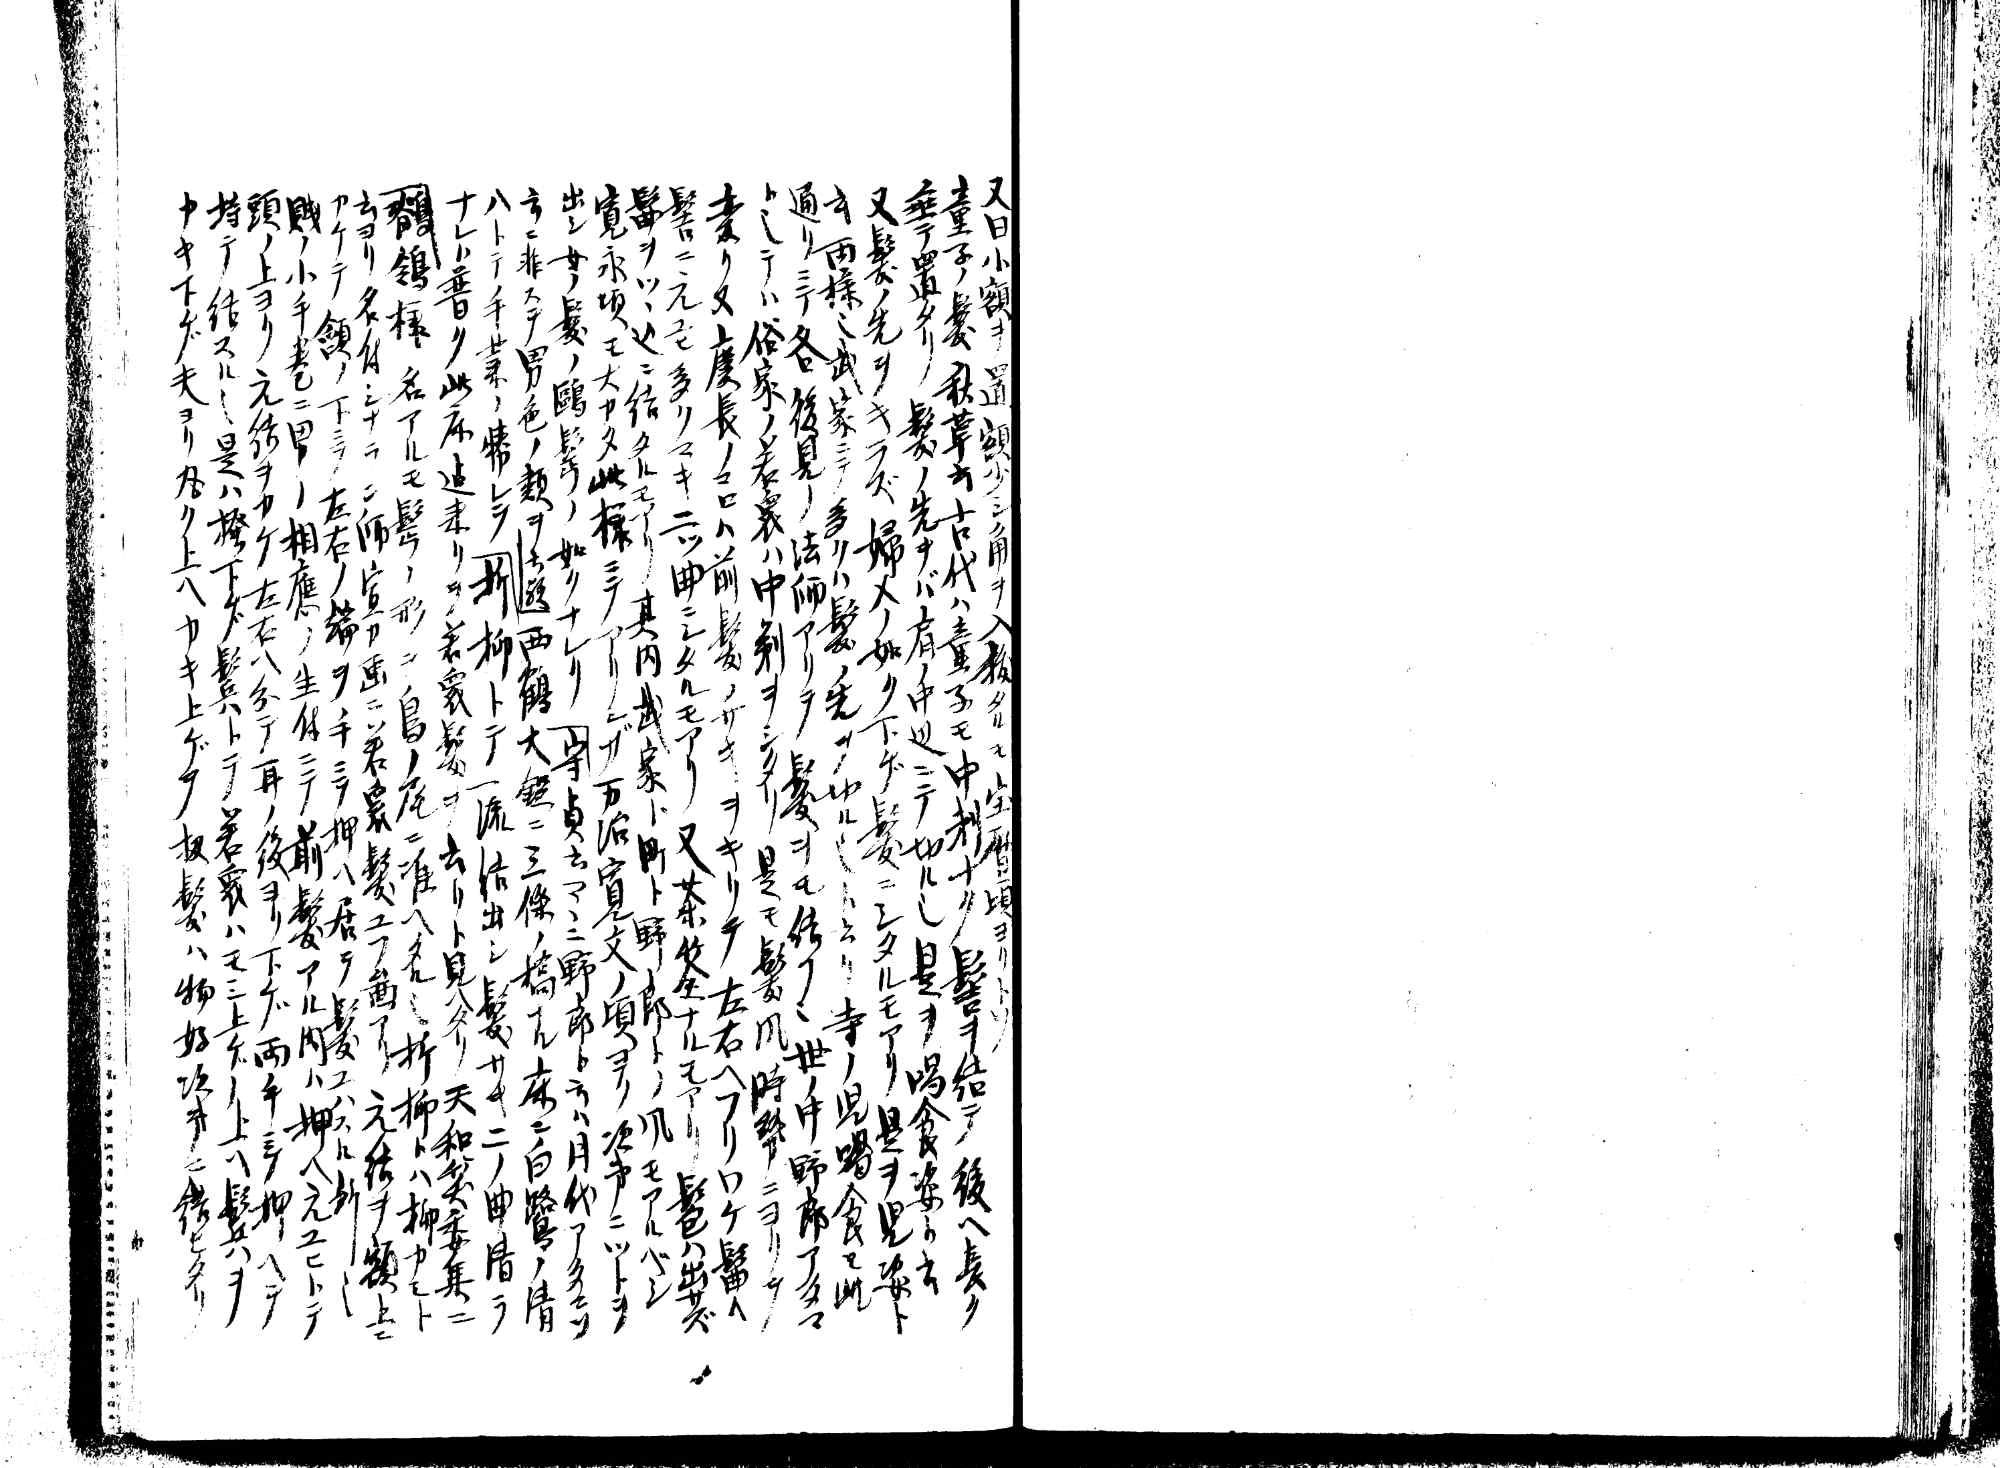 又曰小額ヲ置額少シ角ヲ入抜タルモ宝暦頃ヨリトソ
童子ノ髪 秋草云古代ハ童子モ中剃ナク髻ヲ結テ後ヘ長ク
垂テ置タリ 髪ノ先ヲバ肩ノ中辺ニテ切ル也 是ヲ喝食姿ト云
又髪ノ先ヲキラズ婦人ノ如ク下ゲ髪ニシタルモアリ是ヲ児姿ト
云 両様也 武家ニテ多クハ髪ノ先ヲ切ルト云リ 寺ノ児喝食モ此
通リニテ各後見ノ法師アリテ髪ヲモ結フ也 世ノ中野郎アタマ
トシテハ俗家ノ若衆ハ中剃ヲシタリ 是モ髪風時勢ニヨリテ
変リ又上慶長ノコロハ前髪ノサキヲキリテ左右ヘフリワケ髷ヘ
髻ニ元ユモ多クマキ二ツ曲ニシタルモアリ又茶筌ナルモアリ 髱ハ出サズ
髷ヲツヽ込ニ結タルモアリ 其内武家ト町ト野郎トノ風モアルベシ
寛永頃モ大カタ此様ニテアリシガ万治寛文ノ頃ヨリ次第ニツトヲ
出シ女ノ髪ノ鷗髱ノ如クナレリ 守貞云フニ野郎ト云ハ月代アタマヲ
云ニ非ズテ男色ノ類ヲ云 西鶴大鑑ニ三條ノ橋ナル床ニ白鷺ノ清
八トテノ手業ノ勝レテ 折柳トテ一流結出シ髪サキ二ノ曲清ラ
ナレハ普ク此床近来リテ若衆髪ヲ云リト見ヘタリ 天和笑委集ニ
鶺鴒様 名アルモ髷ノ形ニ鳥ノ尾ニ准ヘタル也 折柳トハ柳カモト
云ヨリ名付シナラン師宣カ画ニ若衆髪ユフ画アリ 元結ヲ額上ニ
カケテ頷ノ下ニテ左右ノ端ヲ手ニテ押ヘ居テ髪ユハスル所也
賤ノ小手巻ニ男ノ相應ノ生付ニテ前髪アル内ハ押ヘ元ユヒトテ
頭ノ上ヨリ元結ヲカケ左右ヘ分テ耳ノ後ヨリ下ゲ両手ニテ押ヘテ
持テ結スル也 是ハ撥下ゲ鬢ハトテ若衆ハモミ上ゲノ上ヘ鬢ハヲ
カキ下ゲ夫ヨリ丸ク上ヘカキ上ゲテ 扨髪ハ物好次第ニ結ヒタリ